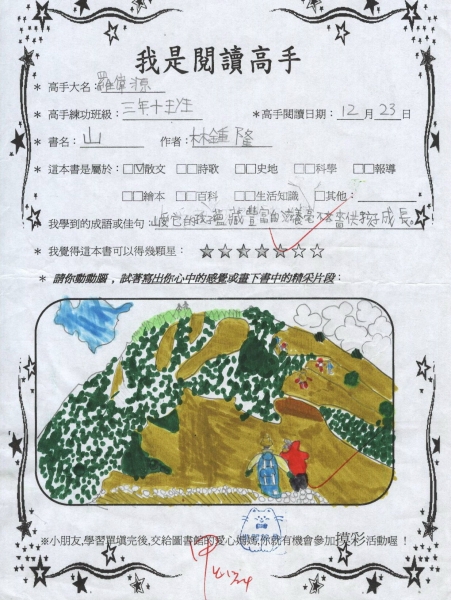 我是閱讀高手
* 高手大名:羅偉源
* 高手練功班級:三年十主生 *高手閱讀日期:12月23日
* 書名:山 作者:林鍾隆
* 這本書是屬於:□☑散文 □□詩歌 □□史地 □□科學 □□報導
□□繪本 □□百科 □□生活知識 □□其他:
我學到的成語或佳句:蘊藏豐富的滋養
* 我覺得這本書可以得幾顆星:★★★★★☆☆
* 請你動動腦,試著寫出你心中的感覺或畫下書中的精采片段:
※小朋友,學習單填完後,交給圖書館的愛心媽媽,你就有機會參加摸彩活動喔!
甲